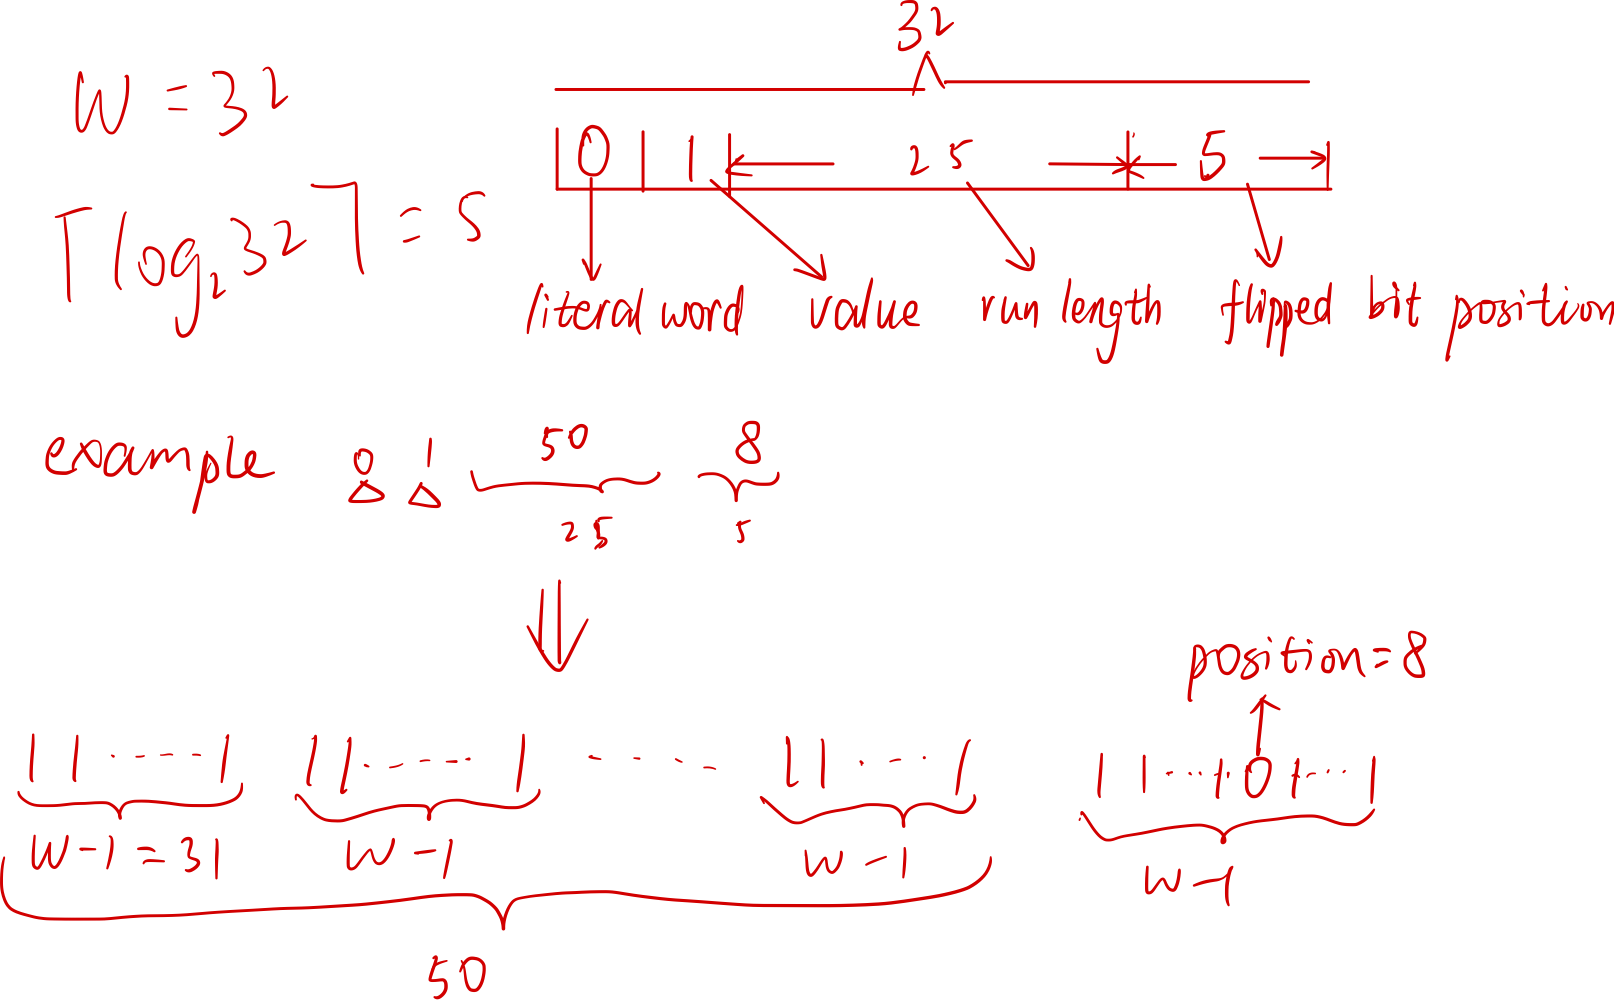 32
W = 32
0 1 25 5
⌈log₂32⌉ = 5
literal word value run length flipped bit position
example 0 1 50 8
25 5
position = 8
11 ····· 1 11 ····· 1 ····· 11 ···· 1 11 ···101··· 1
W-1 = 31 W-1 W-1 W-1
50